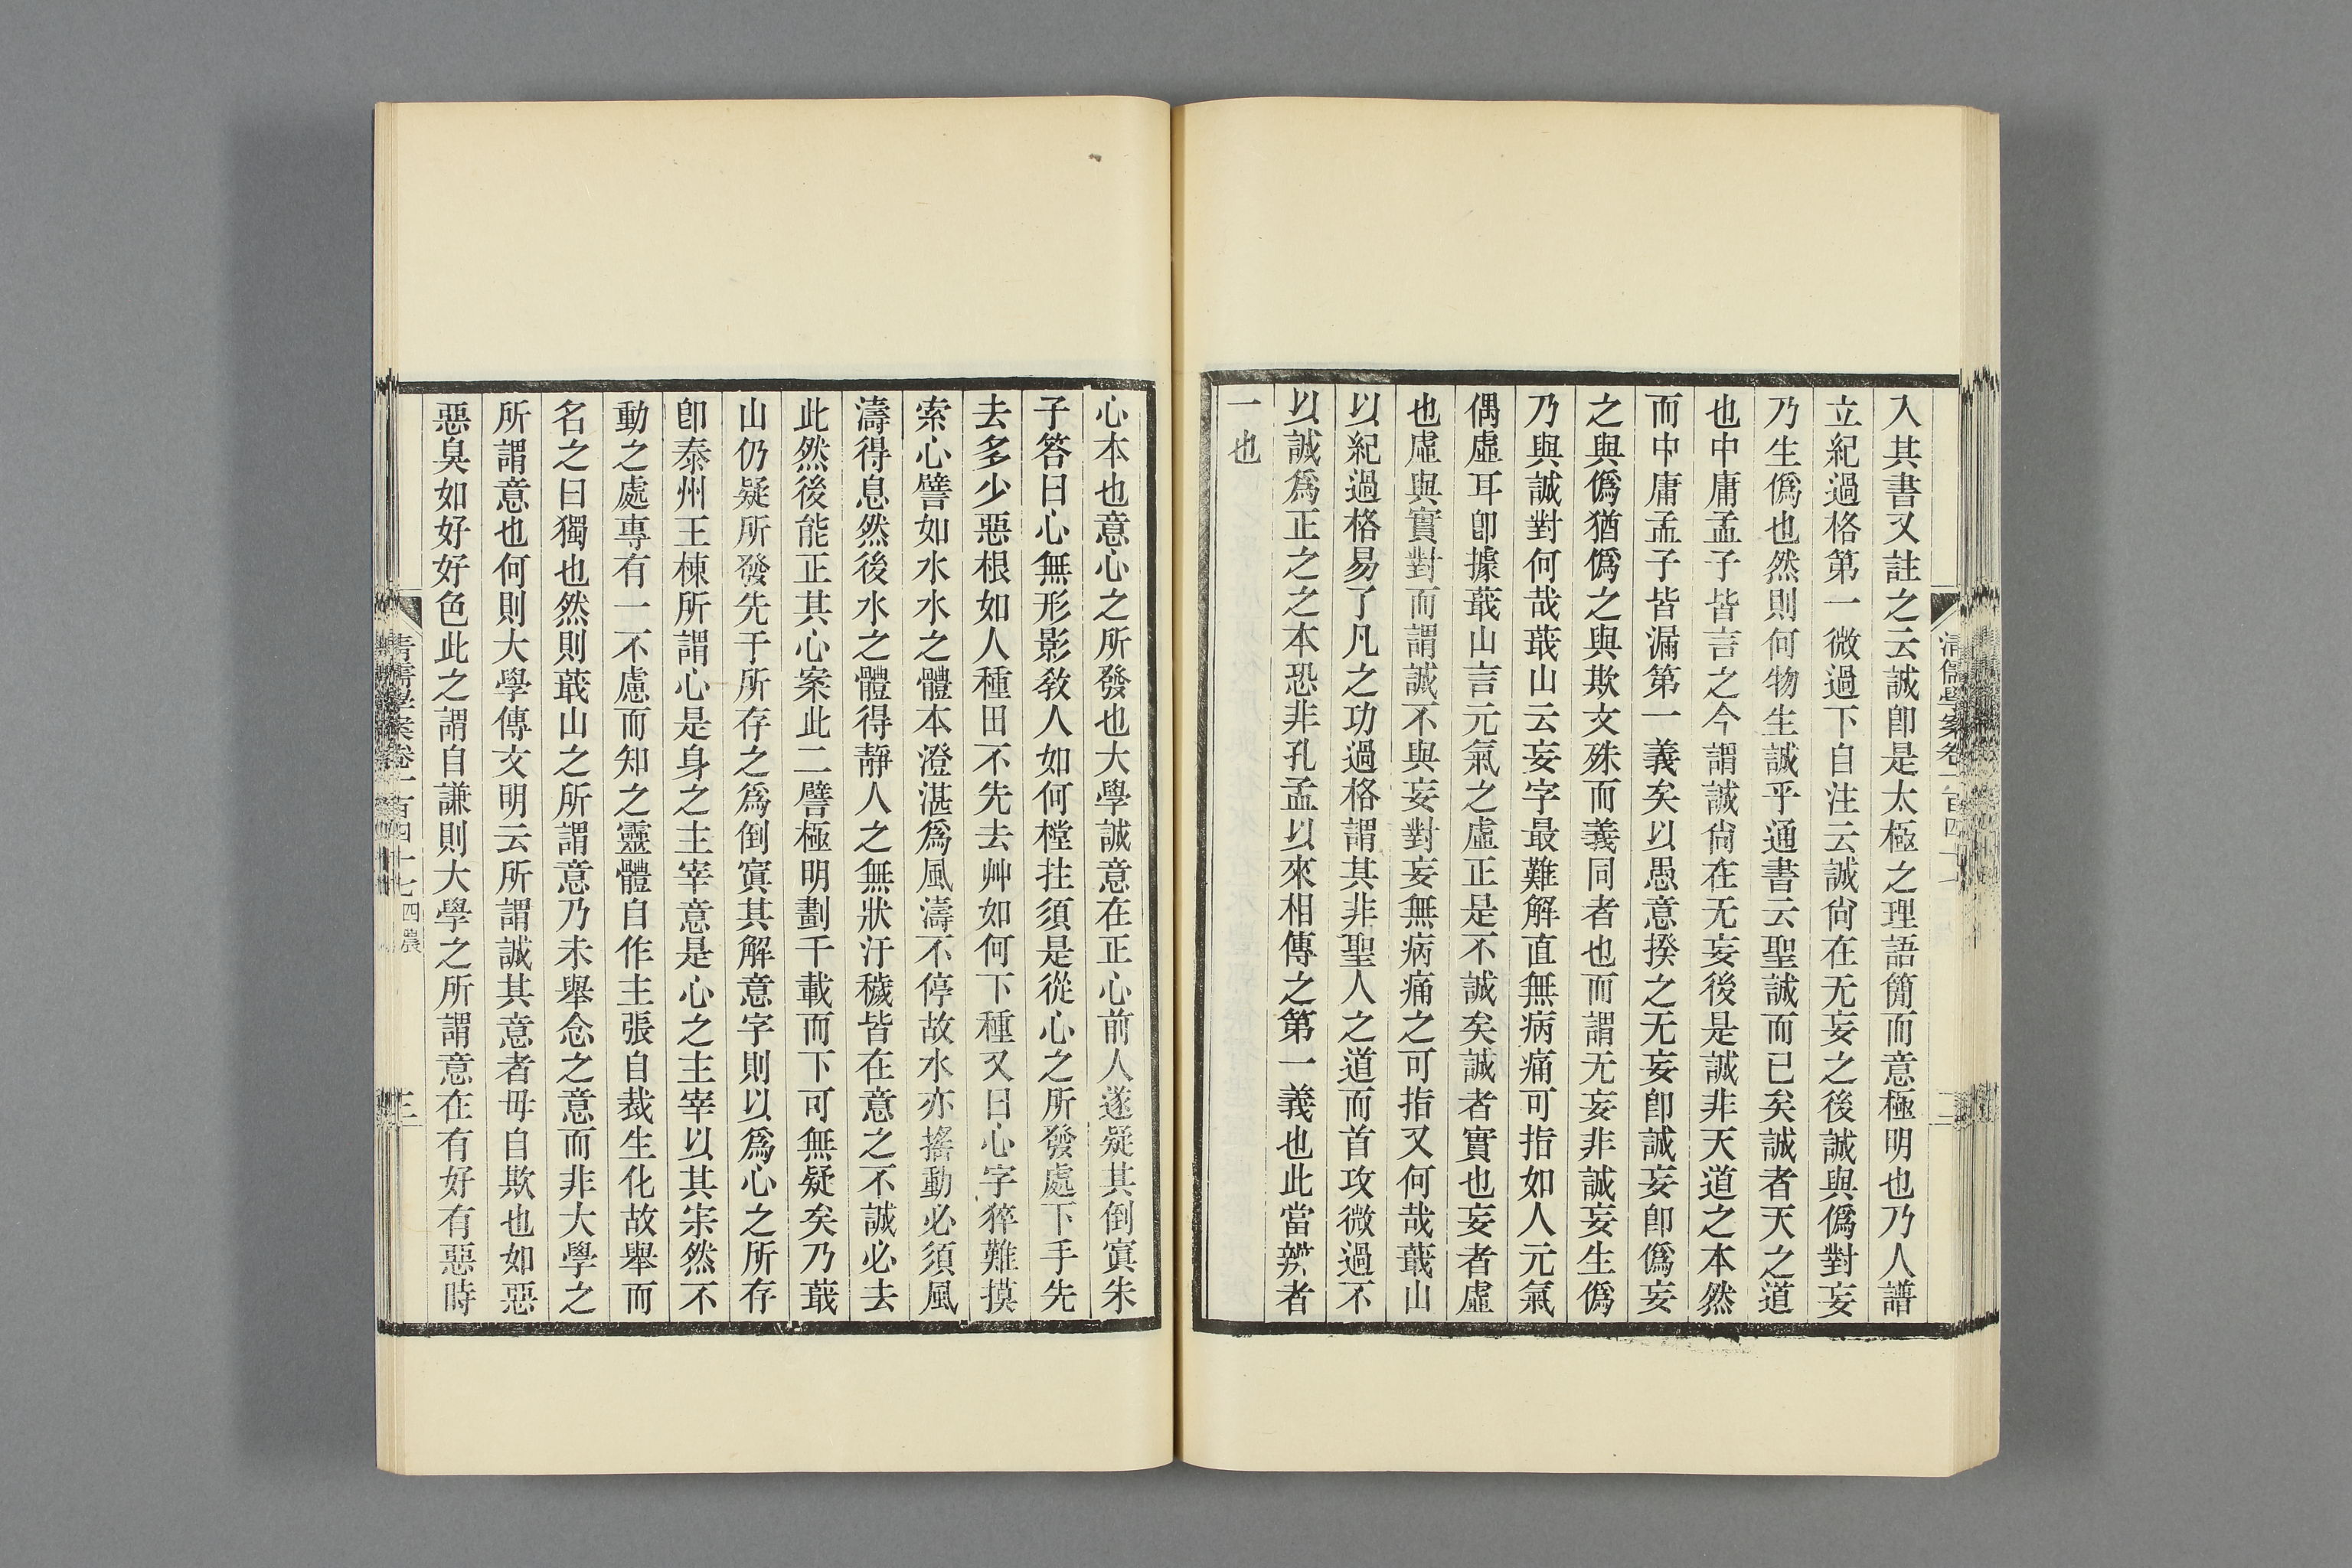 入其書又註之云誠卽是太極之理語簡而意極明也乃人譜
立紀過格第一微過下自注云誠尙在无妄之後誠與僞對妄
乃生僞也然則何物生誠乎通書云聖誠而已矣誠者天之道
也中庸孟子皆言之今謂誠尙在无妄後是誠非天道之本然
而中庸孟子皆漏第一義矣以愚意揆之无妄卽誠妄卽僞妄
之與僞猶僞之與欺文殊而義同者也而謂无妄非誠妄生僞
乃與誠對何哉蕺山云妄字最難解直無病痛可指如人元氣
偶虛耳卽據蕺山言元氣之虛正是不誠矣誠者實也妄者虛
也虛與實對而謂誠不與妄對妄無病痛之可指又何哉蕺山
以紀過格易了凡之功過格謂其非聖人之道而首攻微過不
以誠爲正之之本恐非孔孟以來相傳之第一義也此當辨者
一也
心本也意心之所發也大學誠意在正心前人遂疑其倒寘朱
子答曰心無形影敎人如何樘拄須是從心之所發處下手先
去多少惡根如人種田不先去艸如何下種又曰心字猝難摸
索心譬如水水之體本澄湛爲風濤不停故水亦搖動必須風
濤得息然後水之體得靜人之無狀汙穢皆在意之不誠必去
此然後能正其心案此二譬極明劃千載而下可無疑矣乃蕺
山仍疑所發先于所存之爲倒寘其解意字則以爲心之所存
卽泰州王棟所謂心是身之主宰意是心之主宰以其宋然不
動之處專有一不慮而知之靈體自作主張自裁生化故舉而
名之曰獨也然則蕺山之所謂意乃未舉念之意而非大學之
所謂意也何則大學傳文明云所謂誠其意者毋自欺也如惡
惡臭如好好色此之謂自謙則大學之所謂意在有好有惡時
清儒學案卷一百四十七 四農
三